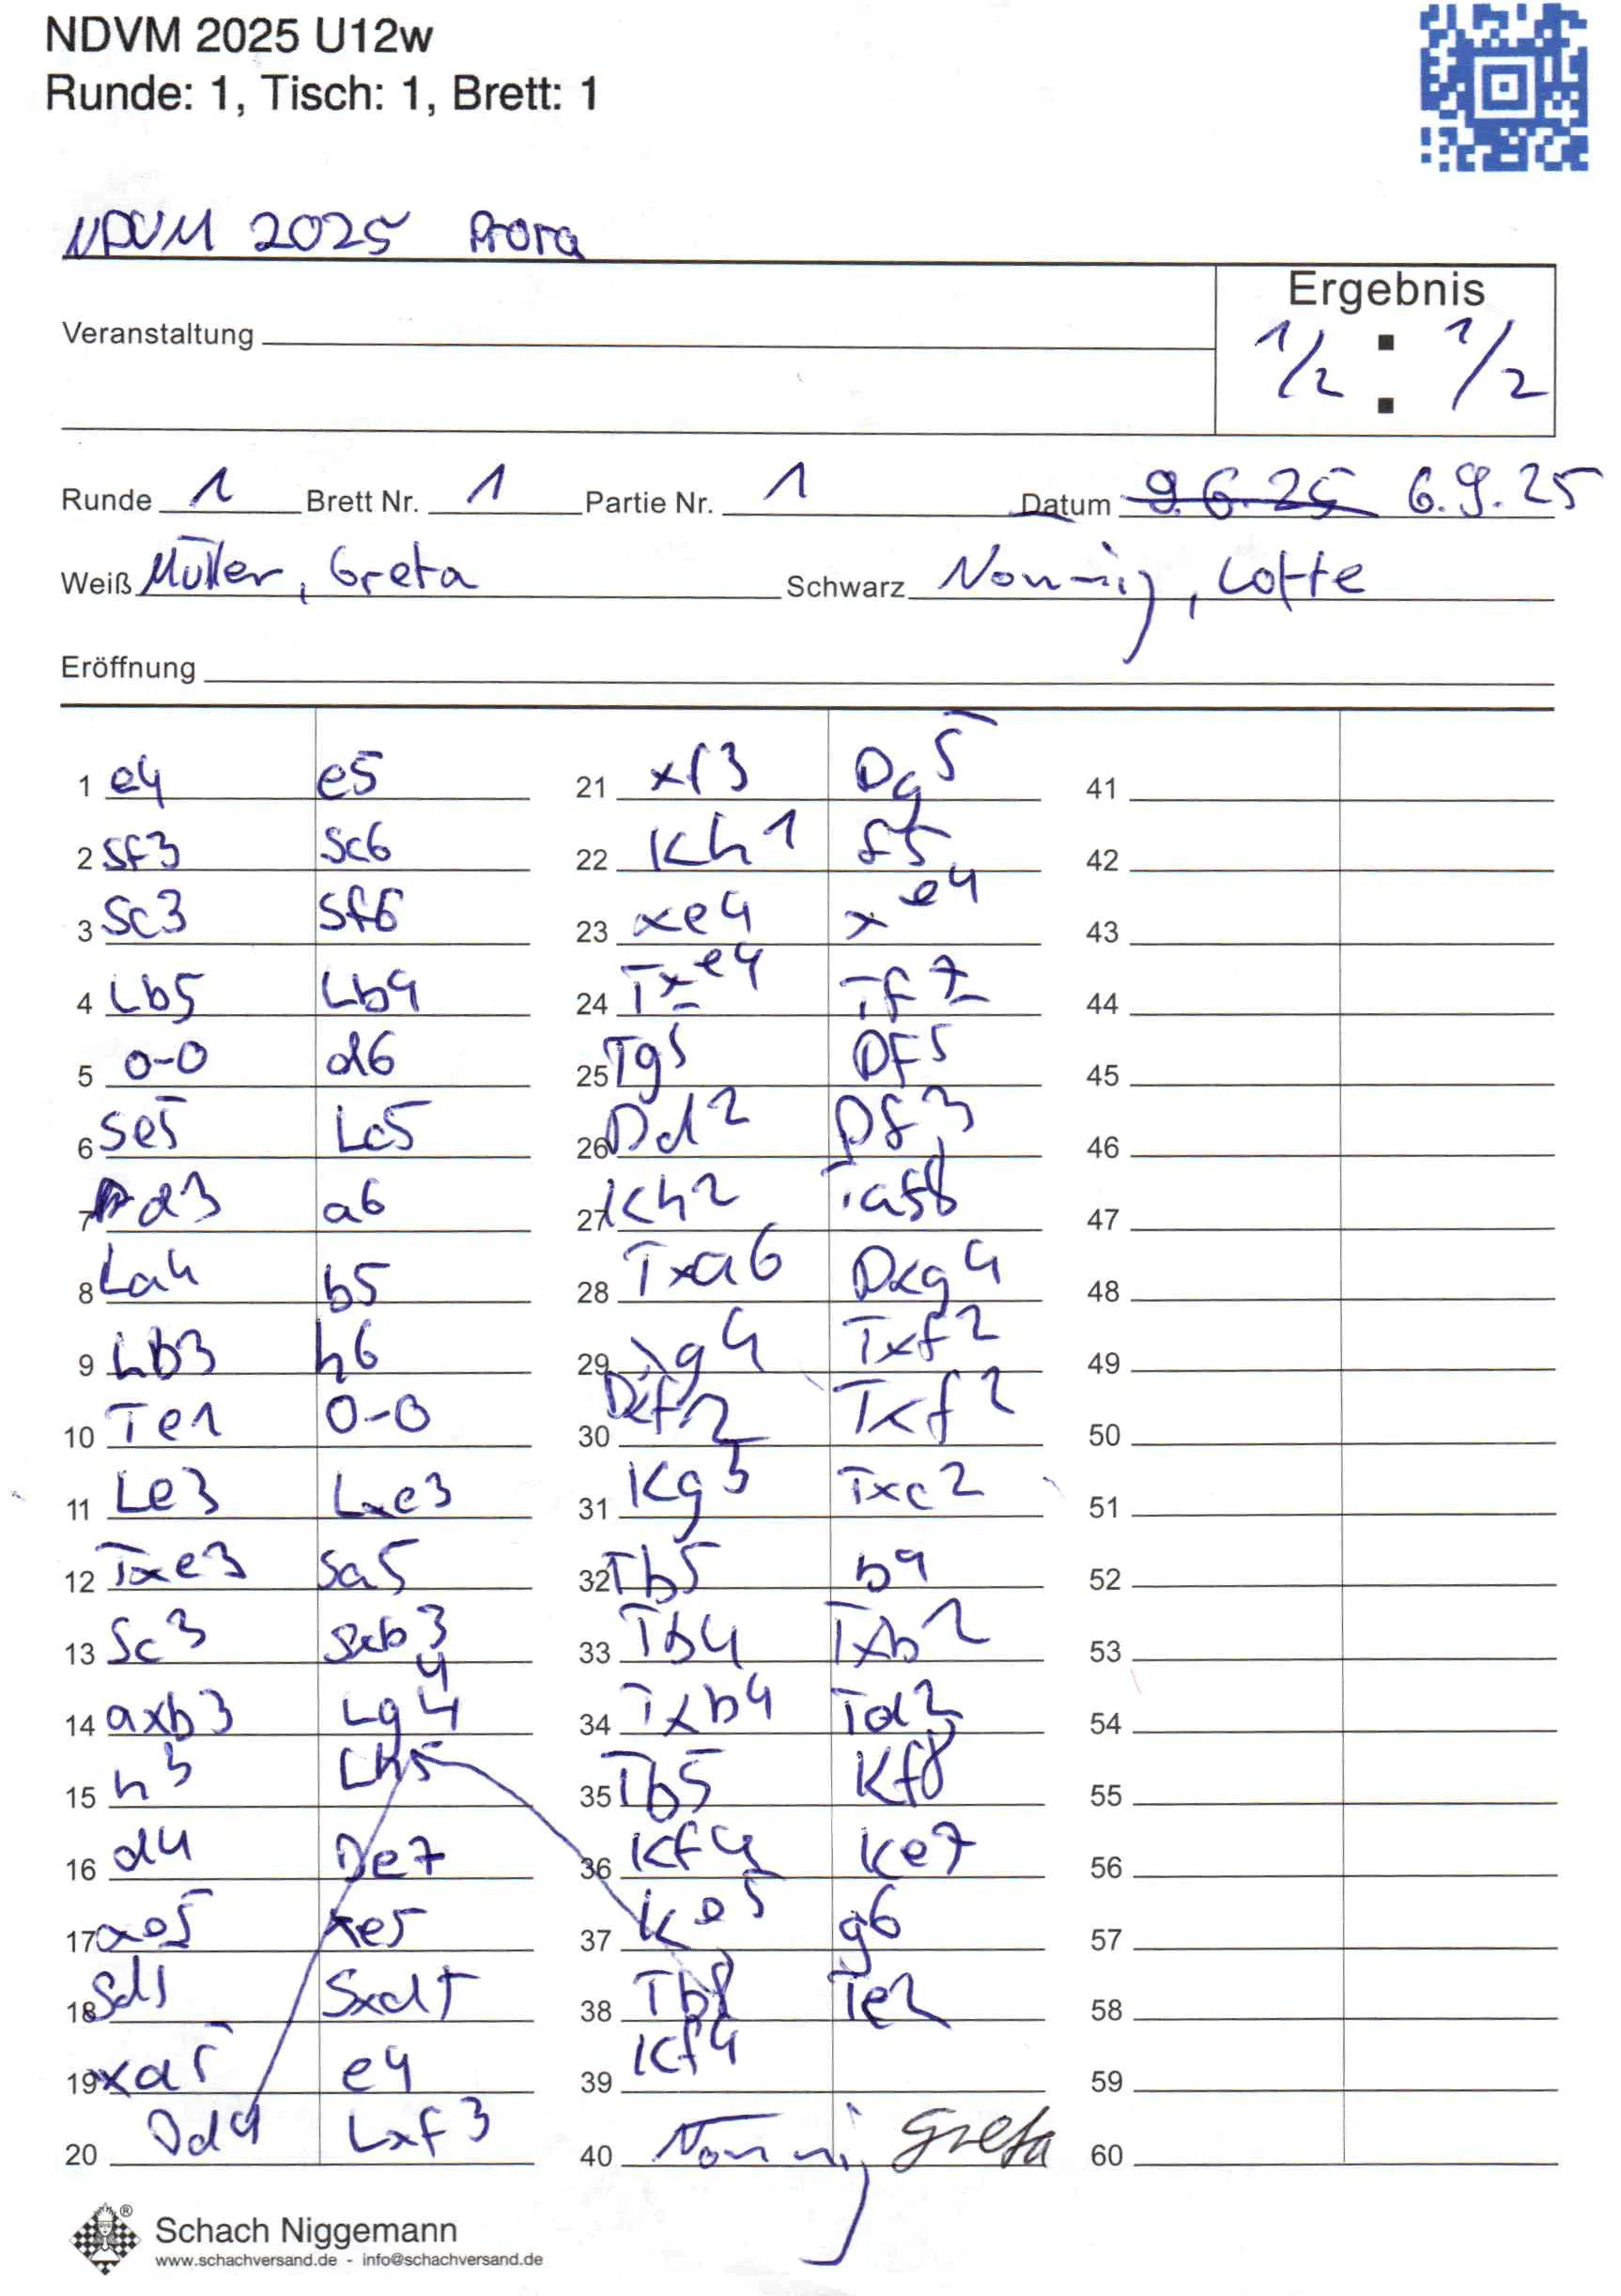 NDVM 2025 U12w
Runde: 1, Tisch: 1, Brett: 1
NDVM 2025 Prora
Ergebnis
1/2 : 1/2
Veranstaltung
Runde 1 Brett Nr. 1 Partie Nr. 1 Datum 9.6.25 6.9.25
Weiß Müller, Greta Schwarz Nonnig, Lotte
Eröffnung
1 e4 e5 21 xf3 Dg5 41
2 Sf3 Sc6 22 Kh1 f5 42
3 Sc3 Sf6 23 xe4 xe4 43
4 Lb5 Lb4 24 Txe4 Tf7 44
5 0-0 d6 25 Tg5 DF5 45
6 Se5 Lc5 26 Dd2 Df3 46
7 d3 a6 27 Kh2 Taf8 47
8 La4 b5 28 Txa6 Dxg4 48
9 Lb3 h6 29 xg4 Txf2 49
10 Te1 0-0 30 Dxf2 Txf2 50
11 Le3 Lxe3 31 Kg3 Txc2 51
12 Txe3 Sa5 32 Tb5 b4 52
13 Sc3 Sxb3 33 Tb4 Txb2 53
14 axb3 Lg4 34 Txb4 Td2 54
15 h3 Lh5 35 Tb5 Kf8 55
16 d4 De7 36 Kf4 Ke7 56
17 ae5 xe5 37 Ke5 g6 57
18 Sd5 Sxd5 38 Tb8 Te2 58
19 xd5 e4 39 Kf4 59
20 Dd4 Lxf3 40 Nonnig Greta 60
Schach Niggemann
www.schachversand.de - info@schachversand.de